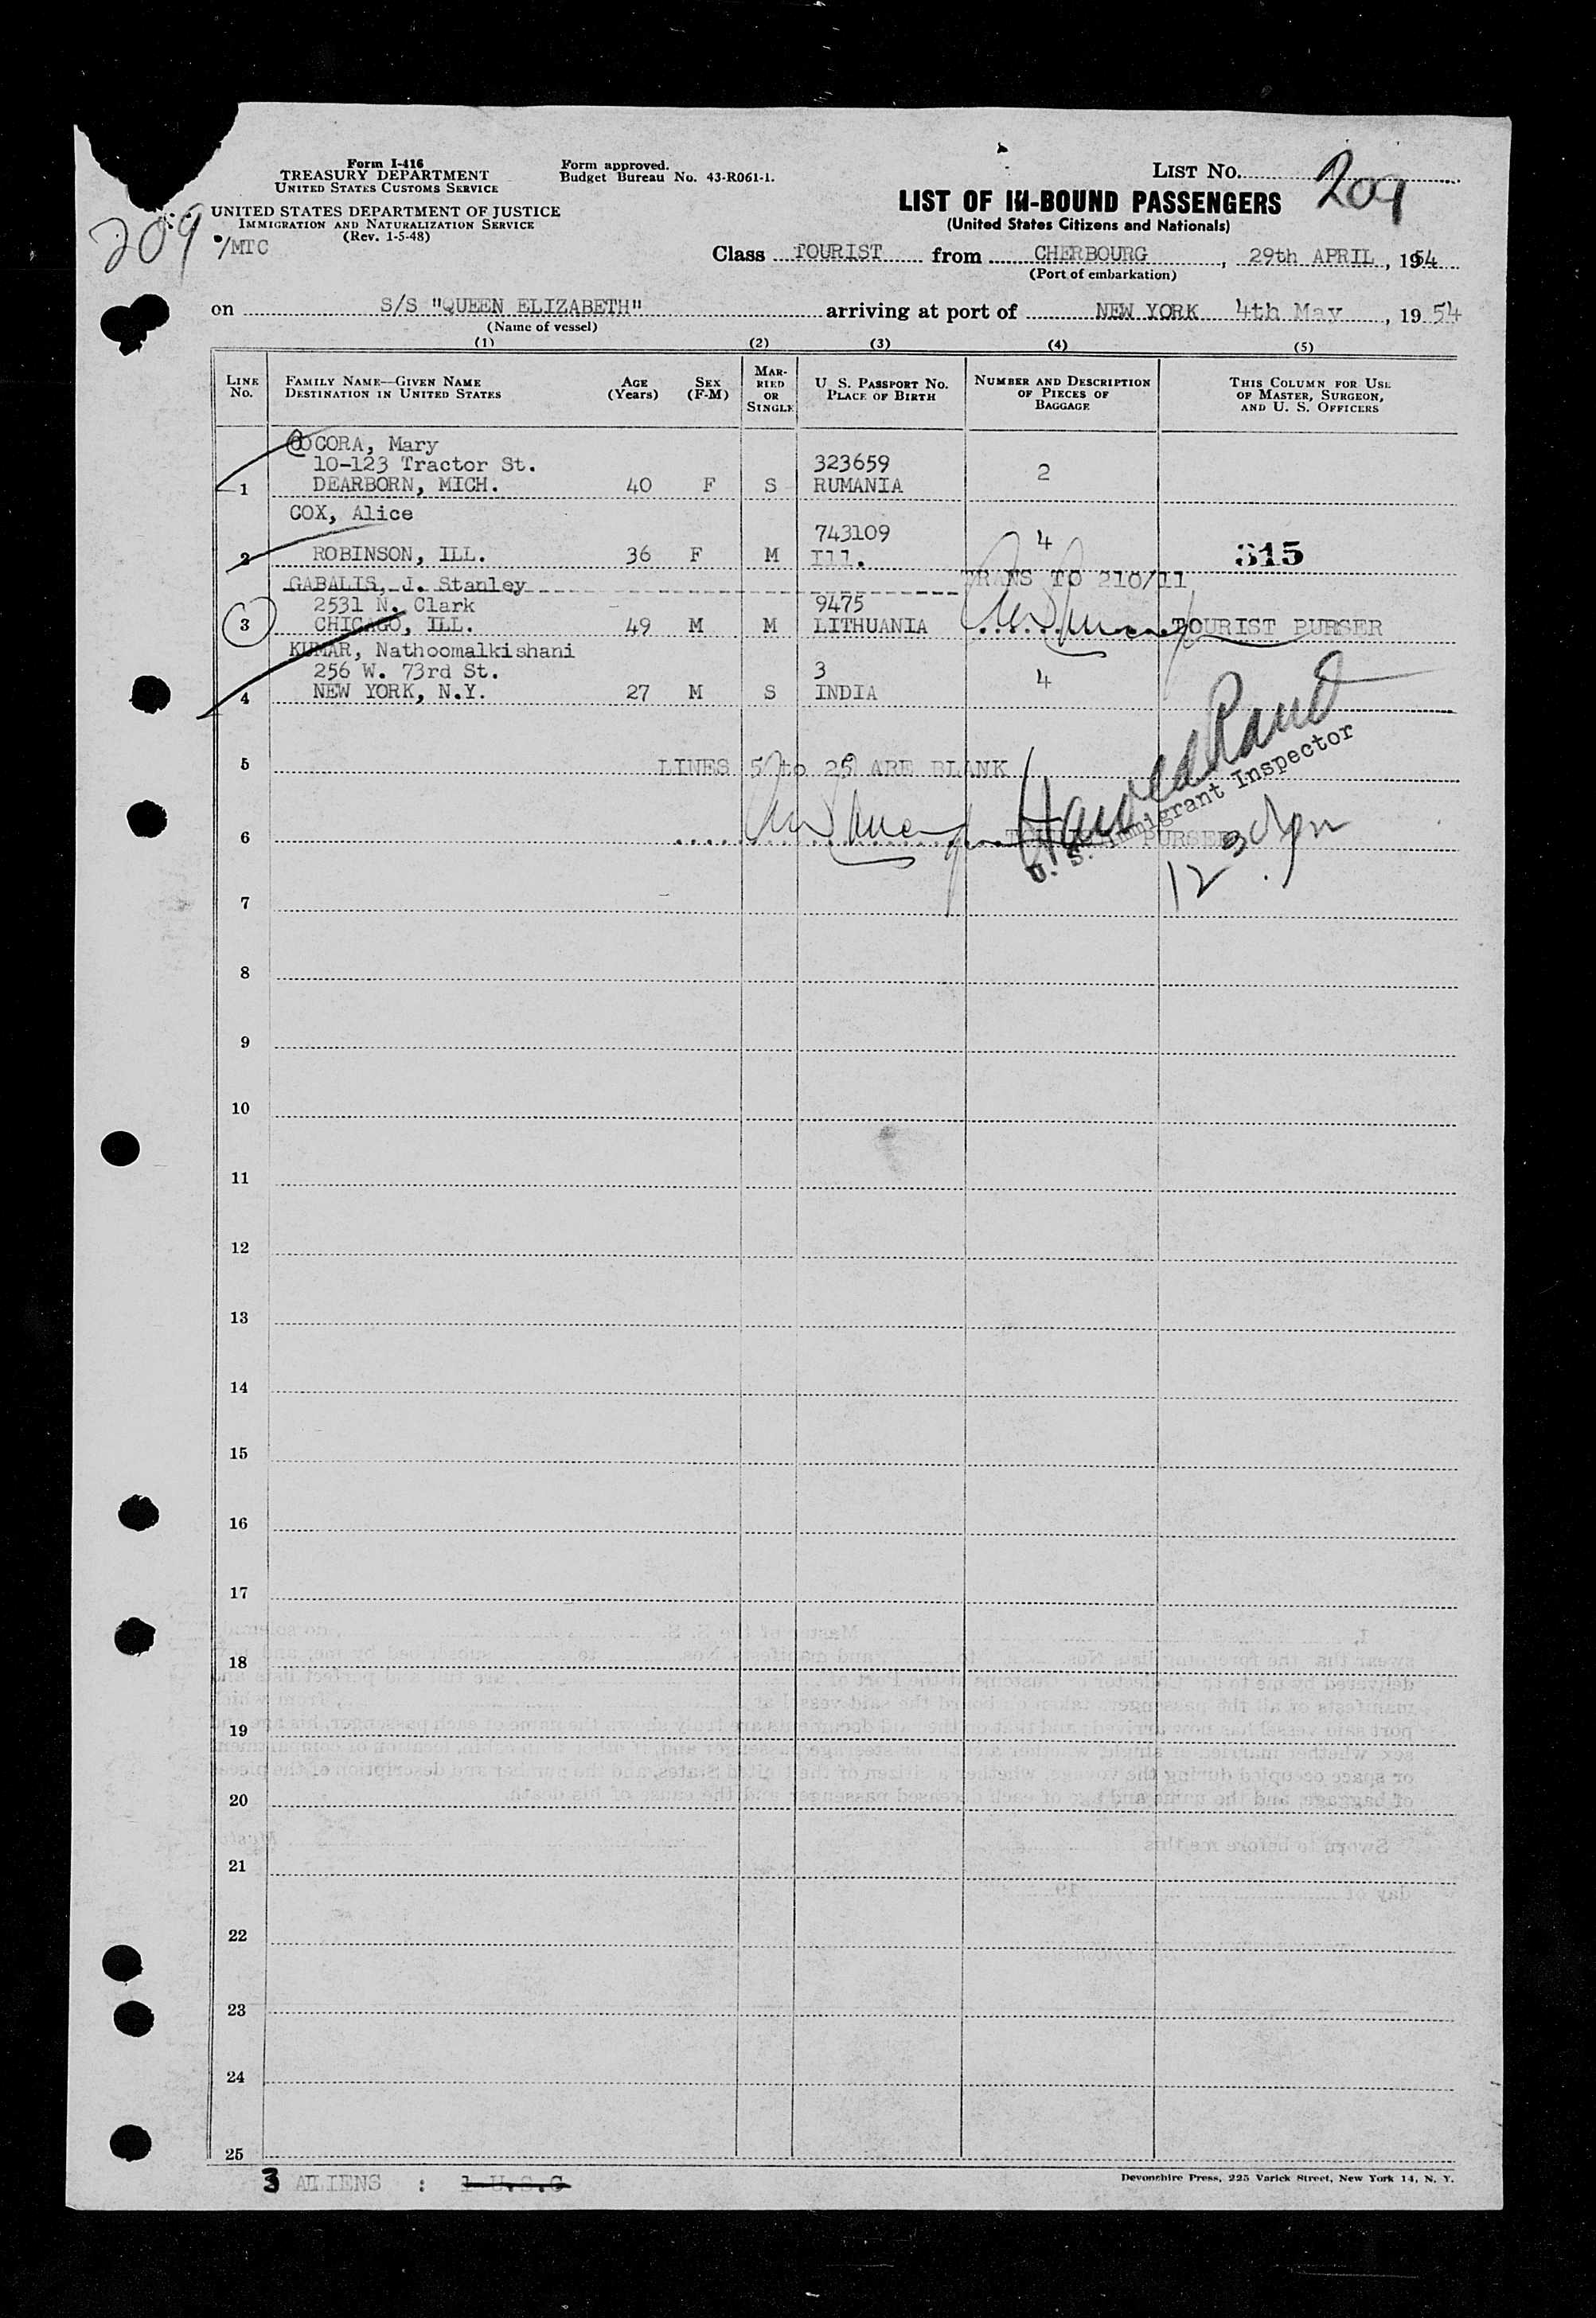 Form I-416
TREASURY DEPARTMENT
UNITED STATES CUSTOMS SERVICE
Form approved.
Budget Bureau No. 43-R061-1.
LIST No. 209
209
UNITED STATES DEPARTMENT OF JUSTICE
IMMIGRATION AND NATURALIZATION SERVICE
(Rev. 1-5-48)
/MTC
LIST OF IN-BOUND PASSENGERS
(United States Citizens and Nationals)
Class TOURIST from CHERBOURG, 29th APRIL, 1954
(Port of embarkation)
on S/S "QUEEN ELIZABETH" arriving at port of NEW YORK 4th May, 1954
(Name of vessel)
(1) (2) (3) (4) (5)
LINE No. FAMILY NAME—GIVEN NAME DESTINATION IN UNITED STATES AGE (Years) SEX (F-M) MARRIED OR SINGLE U. S. PASSPORT No. PLACE OF BIRTH NUMBER AND DESCRIPTION OF PIECES OF BAGGAGE THIS COLUMN FOR USE OF MASTER, SURGEON, AND U. S. OFFICERS
COCORA, Mary
10-123 Tractor St. 323659 2
1 DEARBORN, MICH. 40 F S RUMANIA
COX, Alice
743109 4
2 ROBINSON, ILL. 36 F M Ill. 315
GABALIS, J. Stanley TRANS TO 210/11
2531 N. Clark 9475
3 CHICAGO, ILL. 49 M M LITHUANIA TOURIST PURSER
KUMAR, Nathoomalkishani
256 W. 73rd St. 3 4
4 NEW YORK, N.Y. 27 M S INDIA
5 LINES 5 to 25 ARE BLANK
Harold Rand
U. S. Immigrant Inspector
6 TOURIST PURSER
12 30 pm
7
8
9
10
11
12
13
14
15
16
17
18
19
20
21
22
23
24
25
3 ALIENS : 1 U.S.C
Devonshire Press, 225 Varick Street, New York 14, N. Y.